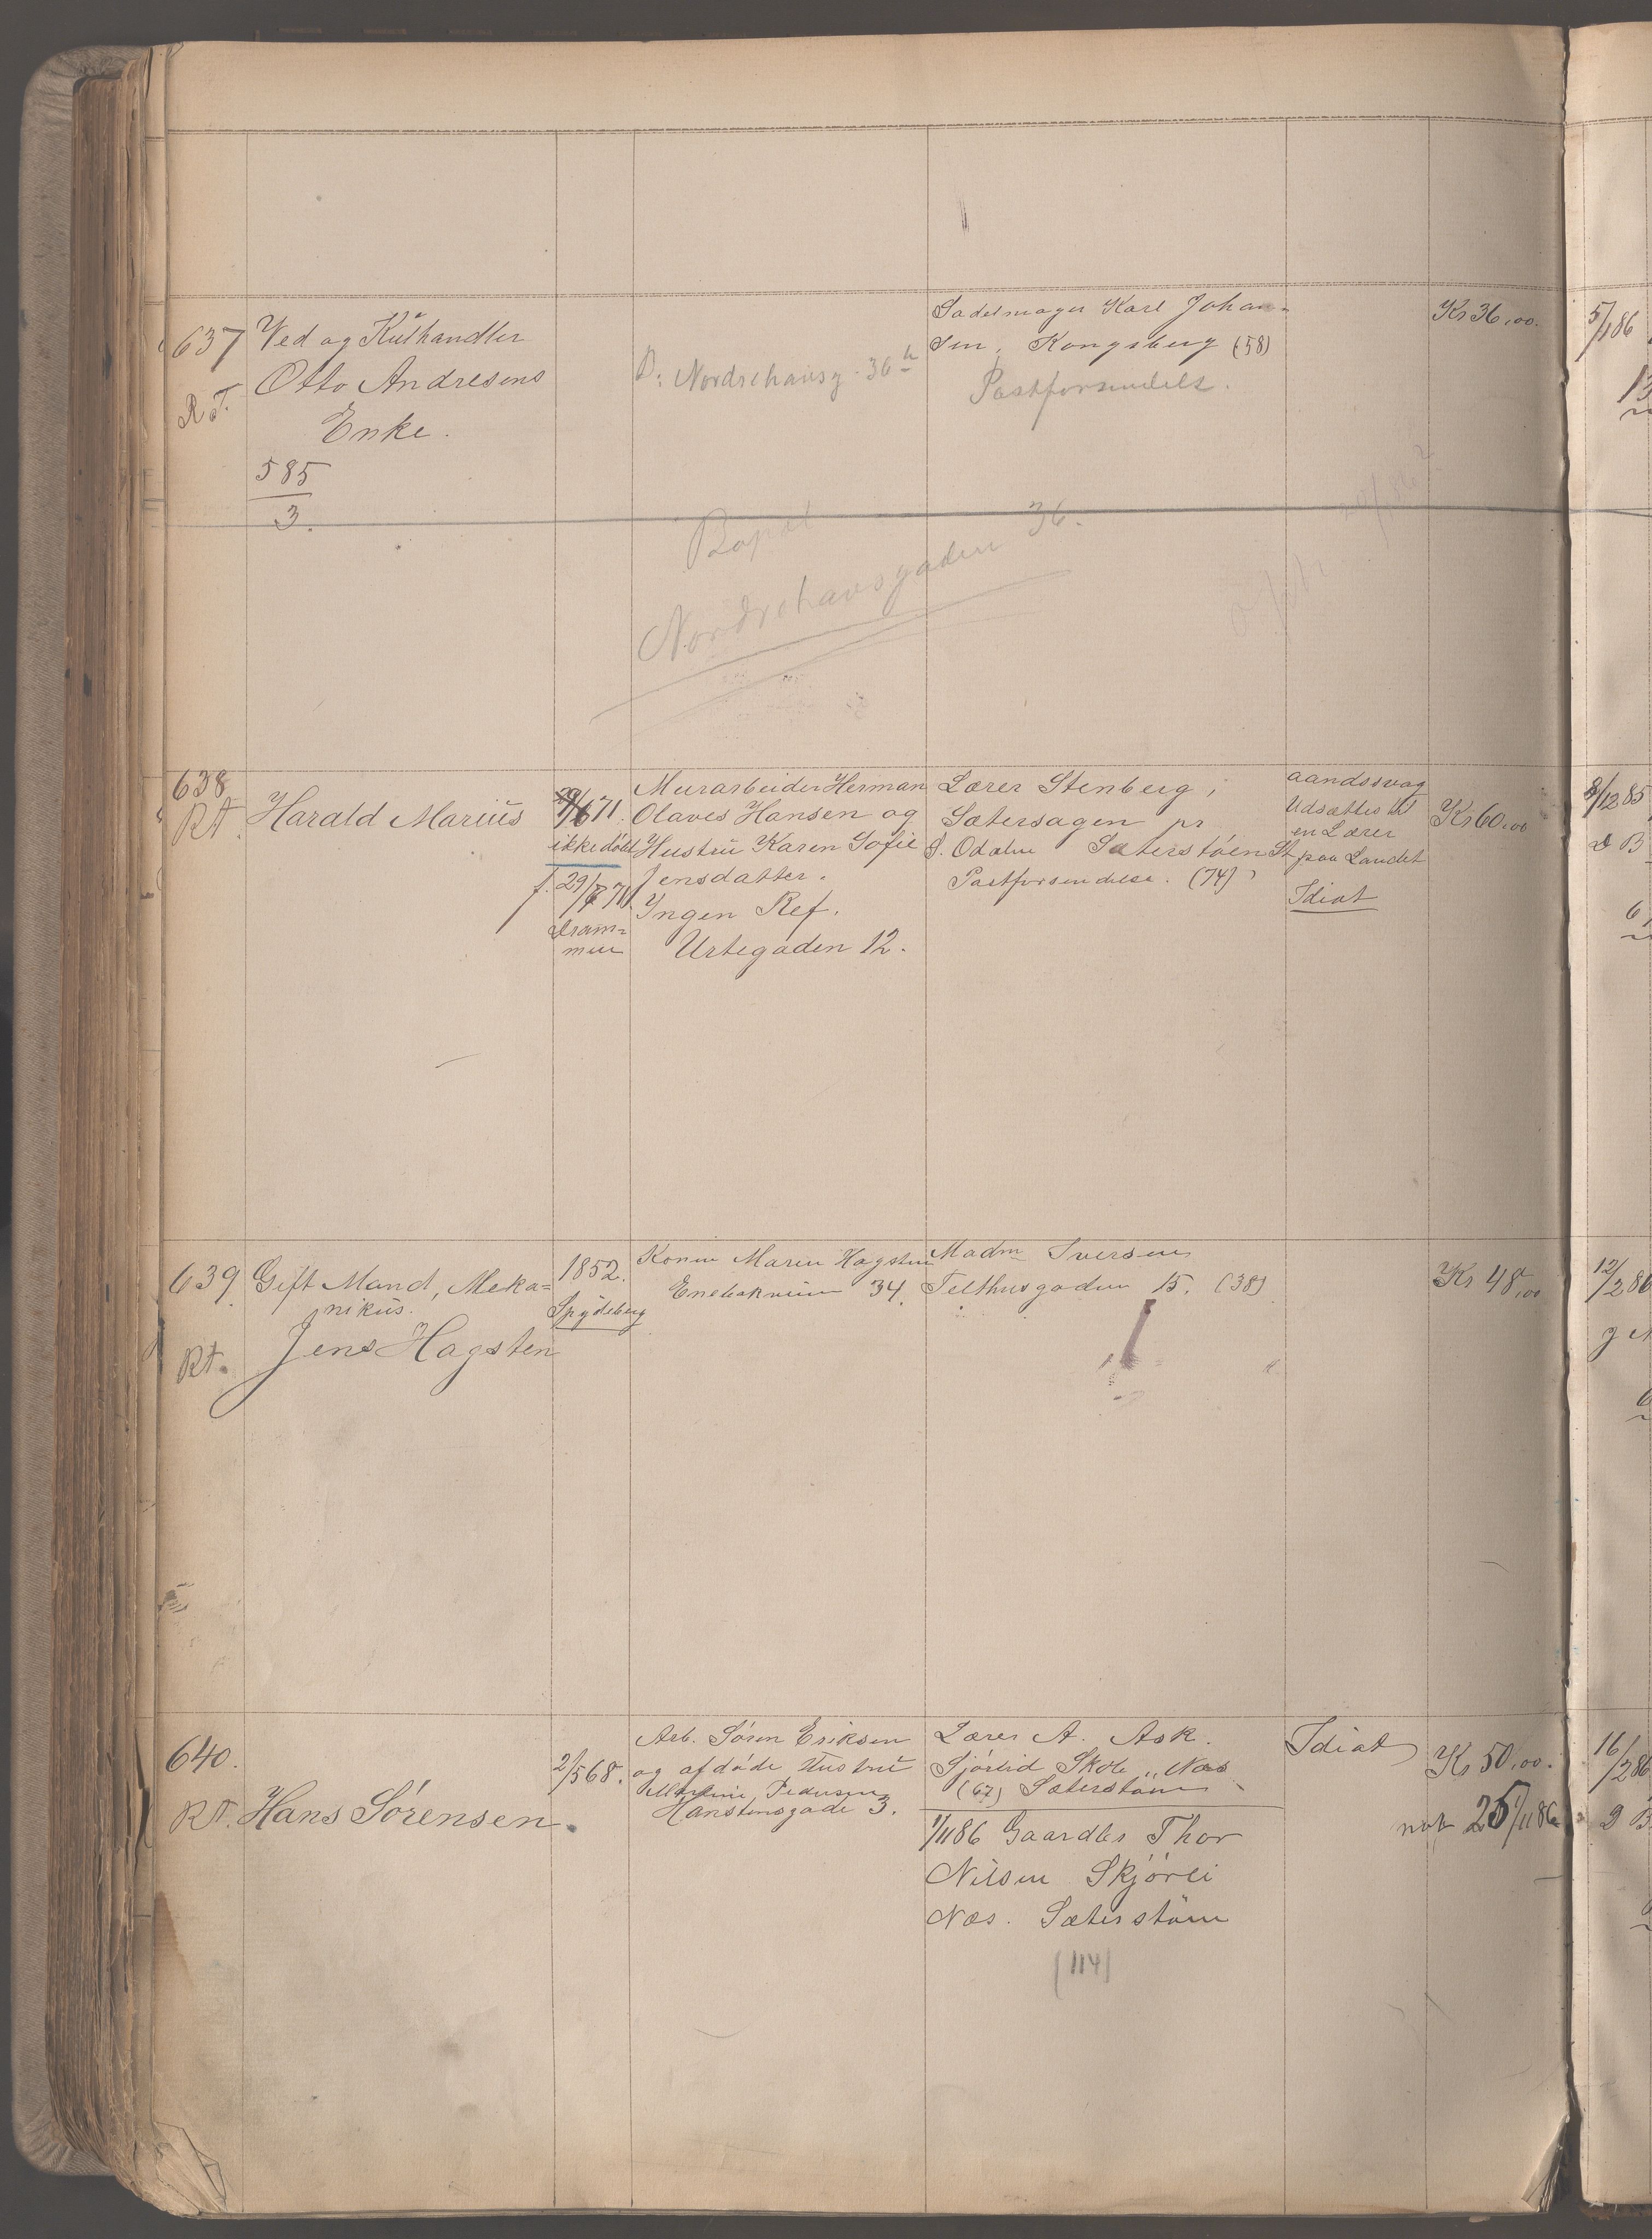 637
R.T.
Ved og Kulhandler
Otto Andresens
Enke.
585
3.
B: Nordrehausg. 36
Sadelmager Karl Johan-
sen, Kongsberg (58)
Postforsendelse.
Kr 36,00.
5/1 86
13
Nordrehausgaden 36.
638
RT.
Harald Marius
71.
ikke døbt
f. 29/7 71
Dram-
men
Murarbeider Herman
Olaves Hansen og
Hustru Karen Sofie
Jensdatter.
Ingen Ref.
Urtegaden 12.
Lærer Stenberg i
Sætersagen pr
S. Odalen Sæterstøen St
Postforsendelse. (74)
aandssvag
Udsættes til
en Lærer
paa Landet
Idiot
Kr 60,00
3/12 85
D B
6
639.
RT.
Gift Mand, Meka-
nikus.
Jens Hagsten
1852.
Spydeberg
Konen Maren Hagsten
Enebakveien 34.
Madm Iversen
Telthusgaden 15. (38)
Kr 48,00
12/2 86
6
640.
RT.
Hans Sørensen.
2/5 68.
Arb. Søren Eriksen
og afdøde Hustru
Pedersen
Hanstensgade 3.
Lærer A. Ask.
Skole, Næs
(67) Sæterstøen
1/11 86 Gaardbr Thor
Nilsen Skjørli
Næs. Sæterstøen
(114)
Idiot
Kr 50,00.
1/11 86
16/2 86